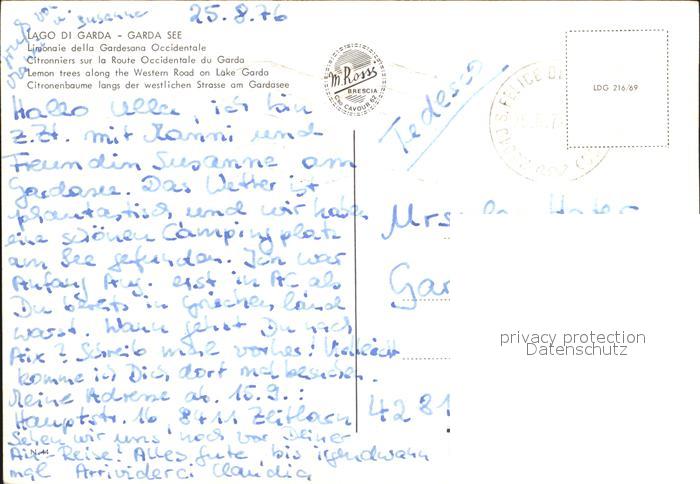 25.8.76
von Susanne
LAGO DI GARDA - GARDA SEE
Limonaie della Gardesana Occidentale
Citronniers sur la Route Occidentale du Garda
Lemon trees along the Western Road on Lake Garda
Citronenbaume langs der westlichen Strasse am Gardasee
m. Rossi
BRESCIA
C.so CAVOUR 62
Tedesco
S. FELICE
LDG 216/69
Hallo Ulla, ich bin
z.Zt. mit Hanni und
Freundin Susanne am
Gardasee. Das Wetter ist
phantastisch und wir haben
eine schönen Campingplatz
am See gefunden. Ich war
Anfang Aug. erst in AC als
Du bereits in Griechenland
warst. Wann gehst Du nach
Aix? Schreib mal vorher! Vielleicht
komme ich Dich dort mal besuchen.
Meine Adresse ab 15.9.:
Hauptstr. 16 8411 Zeitlarn
Sehen wir uns noch vor Deiner
Aix-Reise? Alles Gute bis irgendwann
mal Arrividerci Claudia
N. 44
Gar
4281
privacy protection
Datenschutz